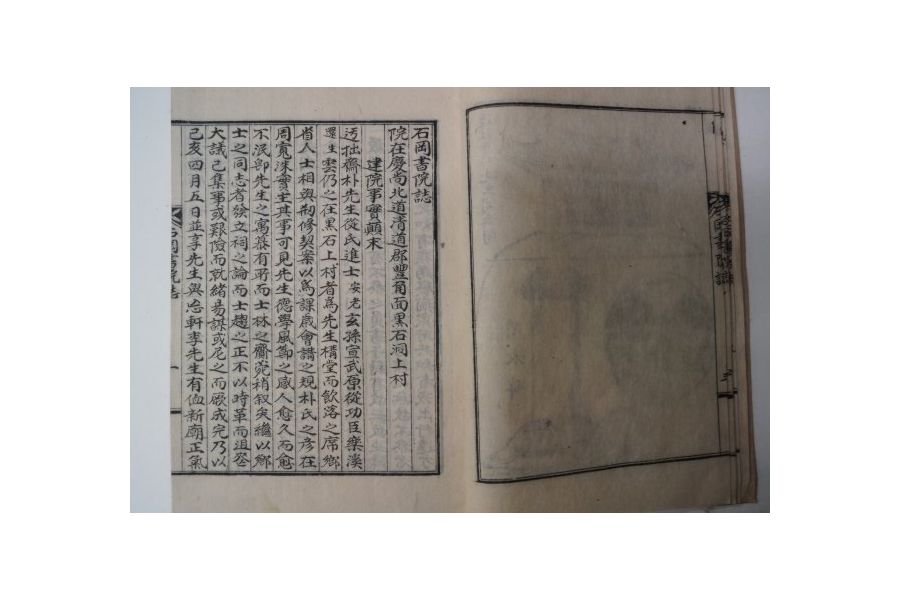 石岡書院誌
院在慶尚北道清道郡豐角面黑石洞上村
建院事實顛末
迃拙齋朴先生從氏進士安老玄孫宣武原從功臣樂溪
還生雲仍之在黑石上村者爲先生構堂而飮落之席鄉
省人士相與刱修契案以爲課歲會講之規朴氏之彦在
周寬洙實主其事可見先生德學風節之感人愈久而愈
不泯卽先生之寓慕有所而士林之齋菀稍叙矣繼以鄉
士之同志者發立祠之論而士趨之正不以時革而沮
大議已集事或艱險而就緖易謀或尼之而厥成完乃以
己亥四月五日並享先生與忍軒李先生有侐新廟正氣
石岡書院誌
一